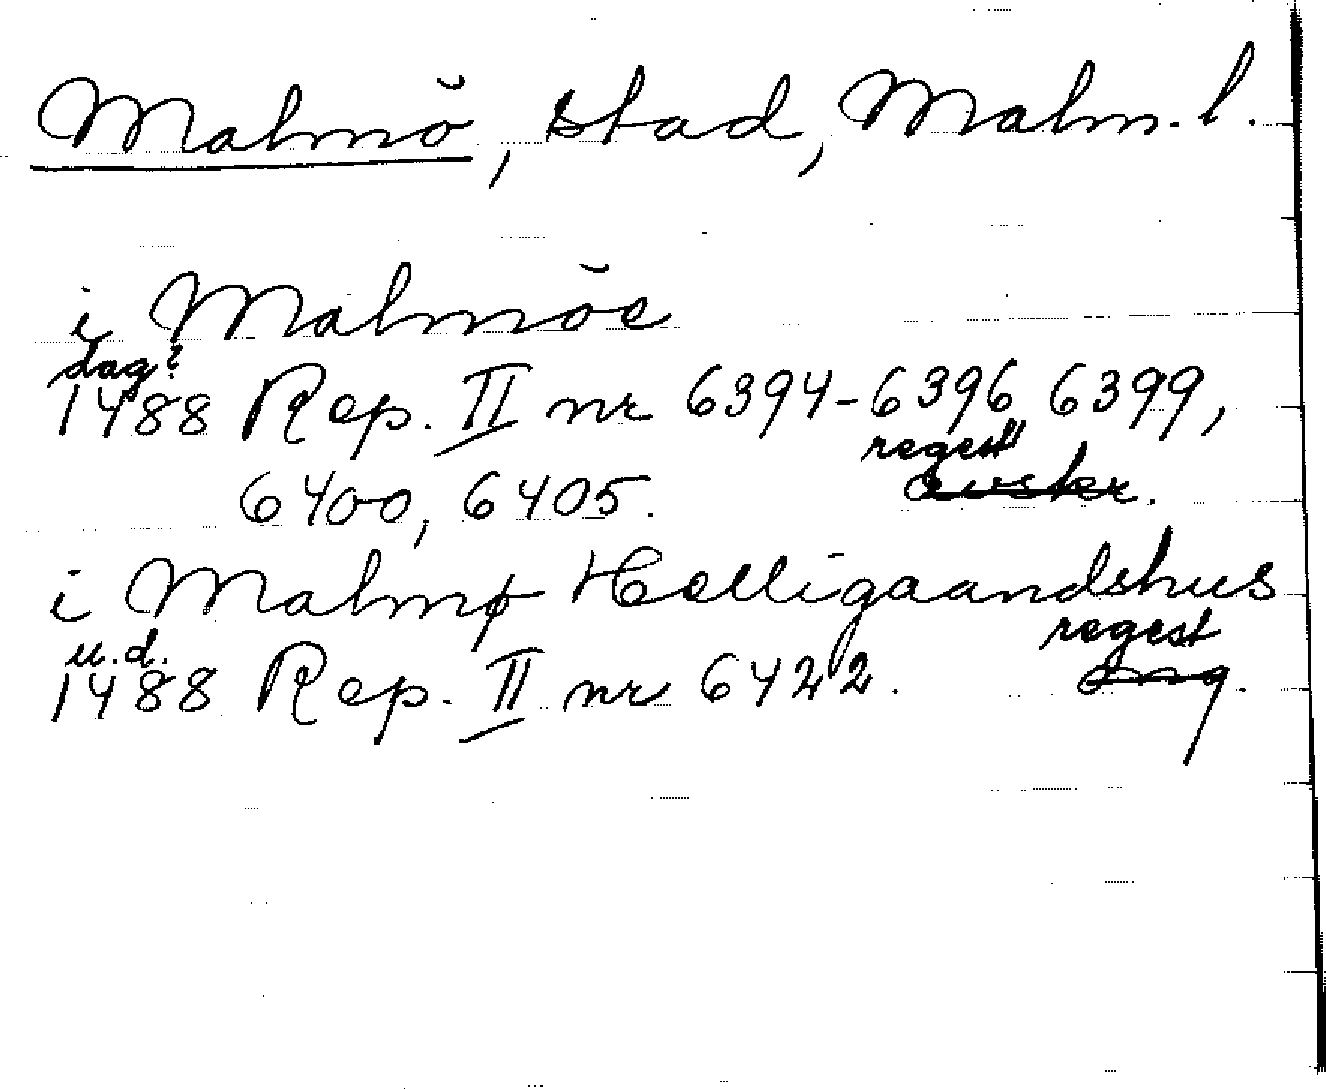 Malmö, stad, Malm. l.
i Malmöe
dag?
1488 Rep. II nr 6394-6396, 6399,
regest
6400, 6405. avskr.
i Malmø Helligaandshus
u.d. regest
1488 Rep. II nr 6422. omg.